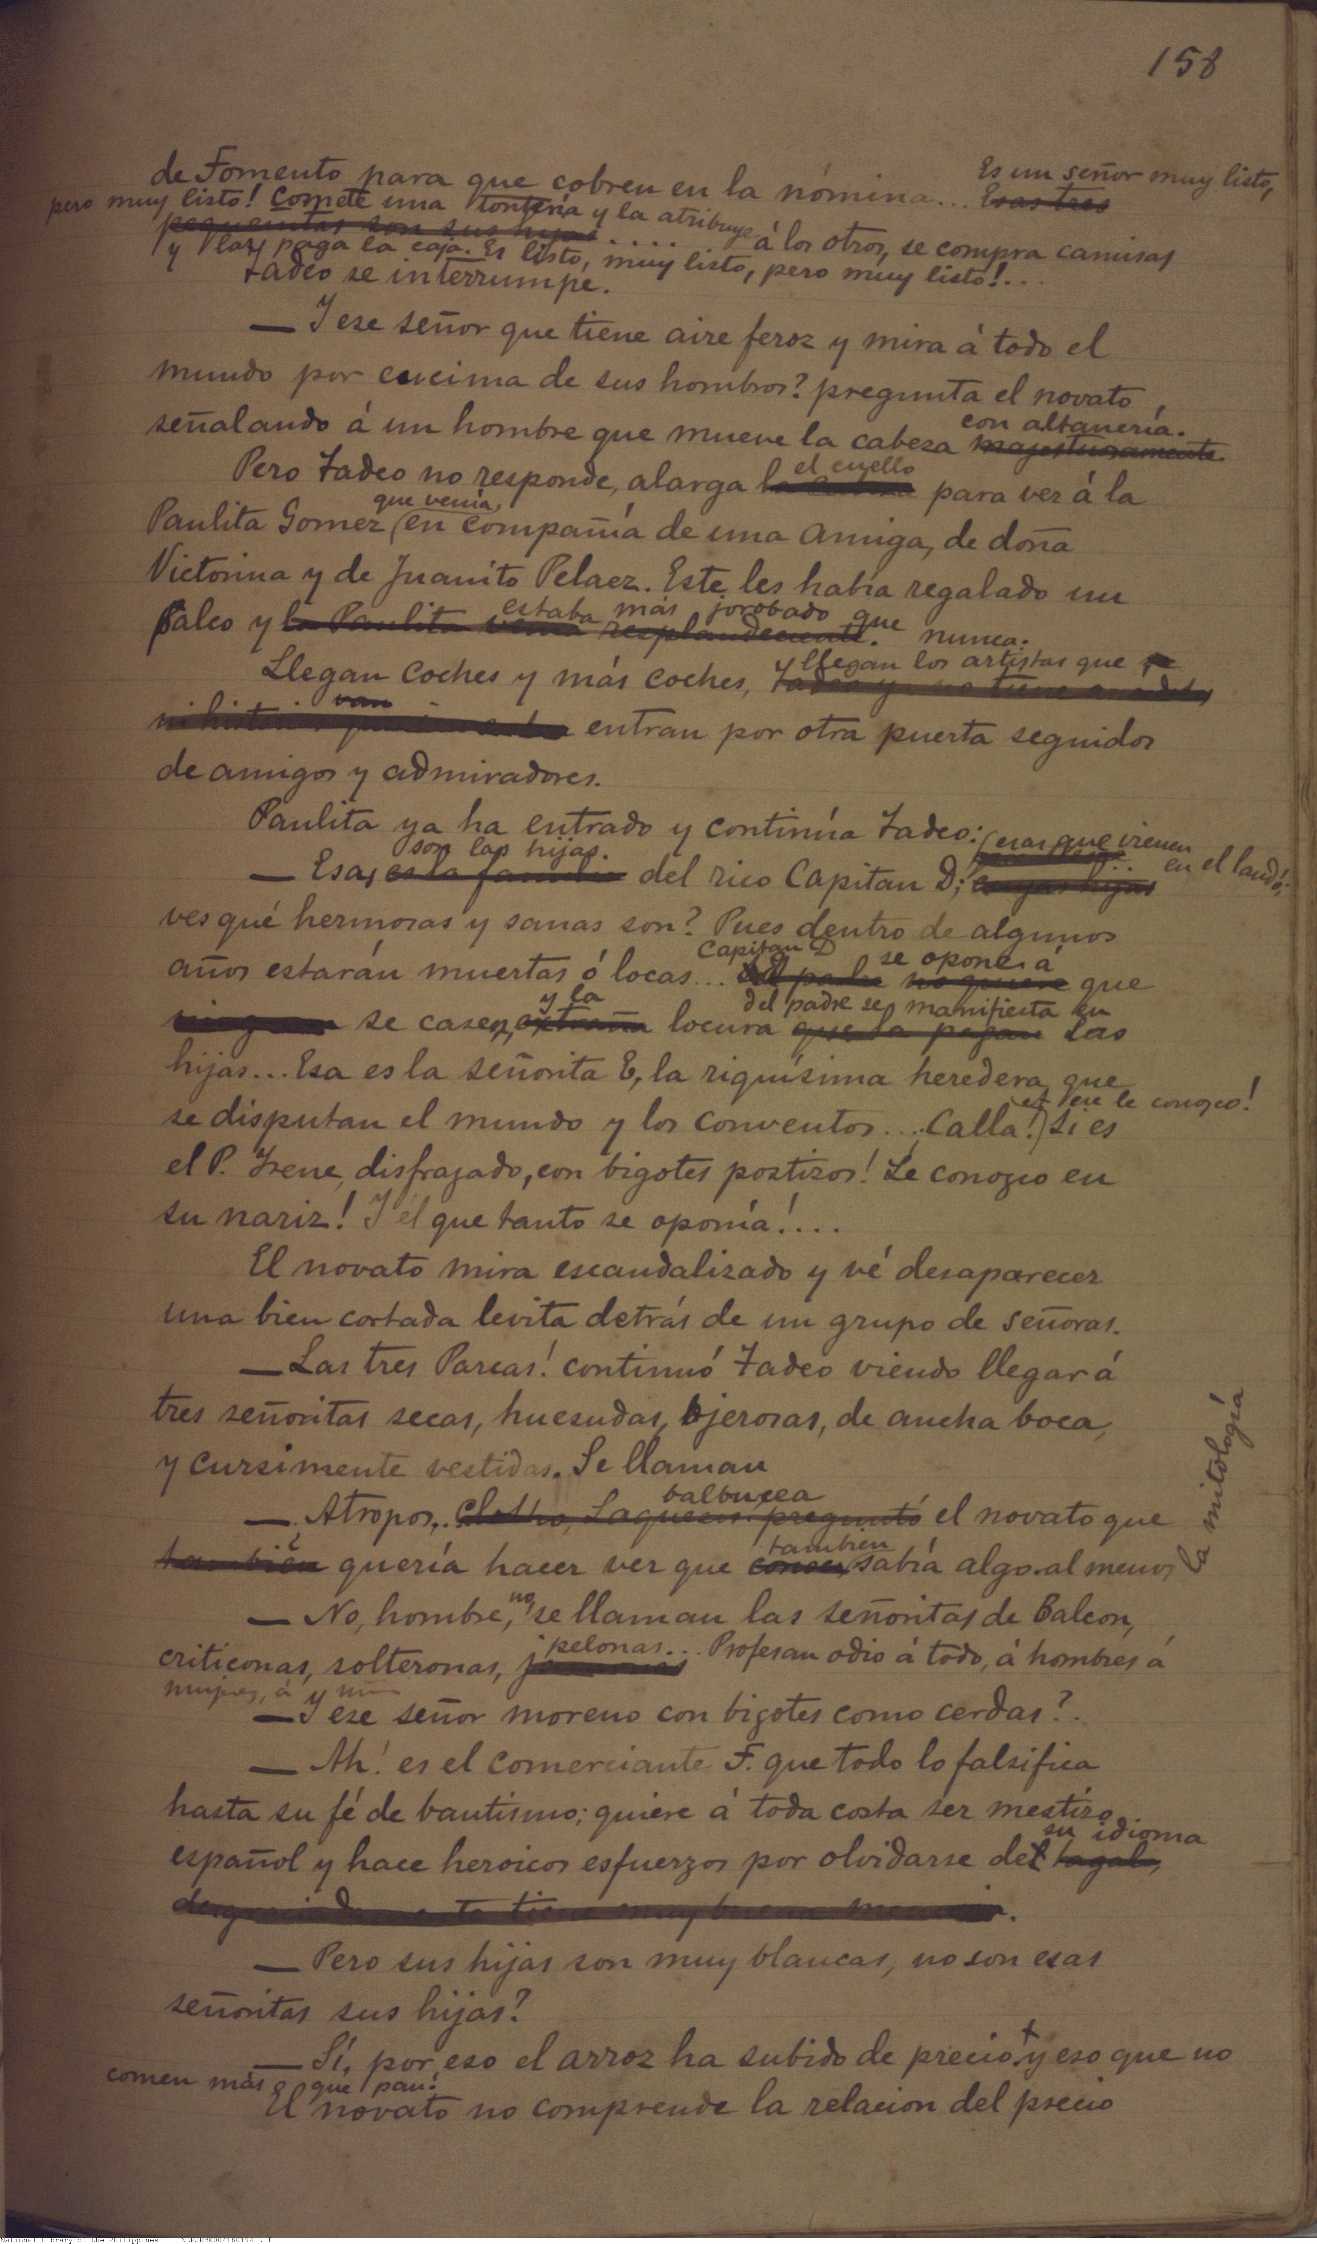 158
de Fomento para que cobren en la nómina... Esas tres Es un señor muy listo,
pero muy listo! Comete una tontería y la atribuye
pequeñitas son sus hijas ..... á los otros, se compra camisas
y las paga la caja. Es listo, muy listo, pero muy listo!...
Tadeo se interrumpe.
— Y ese señor que tiene aire feroz y mira á todo el
mundo por encima de sus hombros? pregunta el novato,
señalando á un hombre que mueve la cabeza majestuosamente con altanería.
Pero Tadeo no responde, alarga el cuello para ver á la
Paulita Gomez que venía, en compañía de una amiga, de doña
Victorina y de Juanito Pelaez. Este les había regalado un
palco y la Paulita venia resplandeciente. estaba más jorobado que nunca.
Llegan coches y más coches, llegan los artistas que
van
entran por otra puerta seguidos
de amigos y admiradores.
Paulita ya ha entrado y continúa Tadeo:
— Esas es la familia son las hijas del rico Capitan D; cuyas hijas esas que vienen en el landó;
ves qué hermosas y sanas son? Pues dentro de algunos
años estarán muertas ó locas... el padre no quiere Capitan D se opone á que
se casen, extraña y la locura que la pegan del padre se manifiesta en las
hijas... Esa es la señorita E, la riquísima heredera que
se disputan el mundo y los conventos... Calla! ese le conozco! Si es
el P. Irene, disfrazado, con bigotes postizos! Le conozco en
su nariz! Y él que tanto se oponía!...
El novato mira escandalizado y vé desaparecer
una bien cortada levita detrás de un grupo de señoras.
— Las tres Parcas! continuó Tadeo viendo llegar á
tres señoritas secas, huesudas, ojerosas, de ancha boca,
y cursimente vestidas. Se llaman
— Atropos,.. Clotho, Laquesis! preguntó balbucea el novato que
también quería hacer ver que conocía también sabía algo. al menos la mitología
— No, hombre, no, se llaman las señoritas de Balcon,
criticonas, solteronas, pelonas... Profesan odio á todo, á hombres á
mujeres, á
— Y ese señor moreno con bigotes como cerdas?.
— Ah! es el comerciante F. que todo lo falsifica
hasta su fé de bautismo; quiere á toda costa ser mestizo
español y hace heroicos esfuerzos por olvidarse del tagalo, su idioma
desgraciadamente tiene muy buena memoria.
— Pero sus hijas son muy blancas, no son esas
señoritas sus hijas?
— Sí, por eso el arroz ha subido de precio y eso que no
comen más que pan!
El novato no comprende la relacion del precio